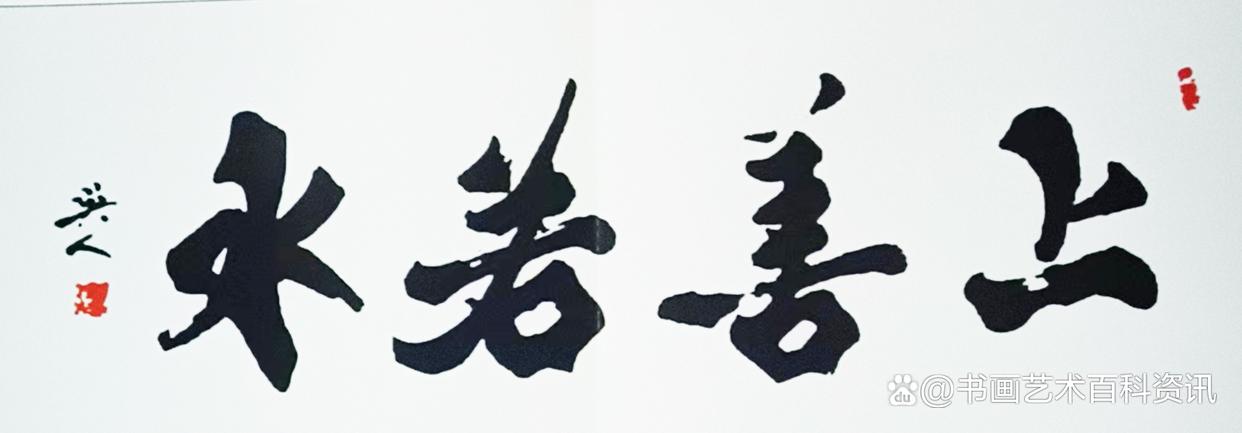 上善若水
@书画艺术百科资讯